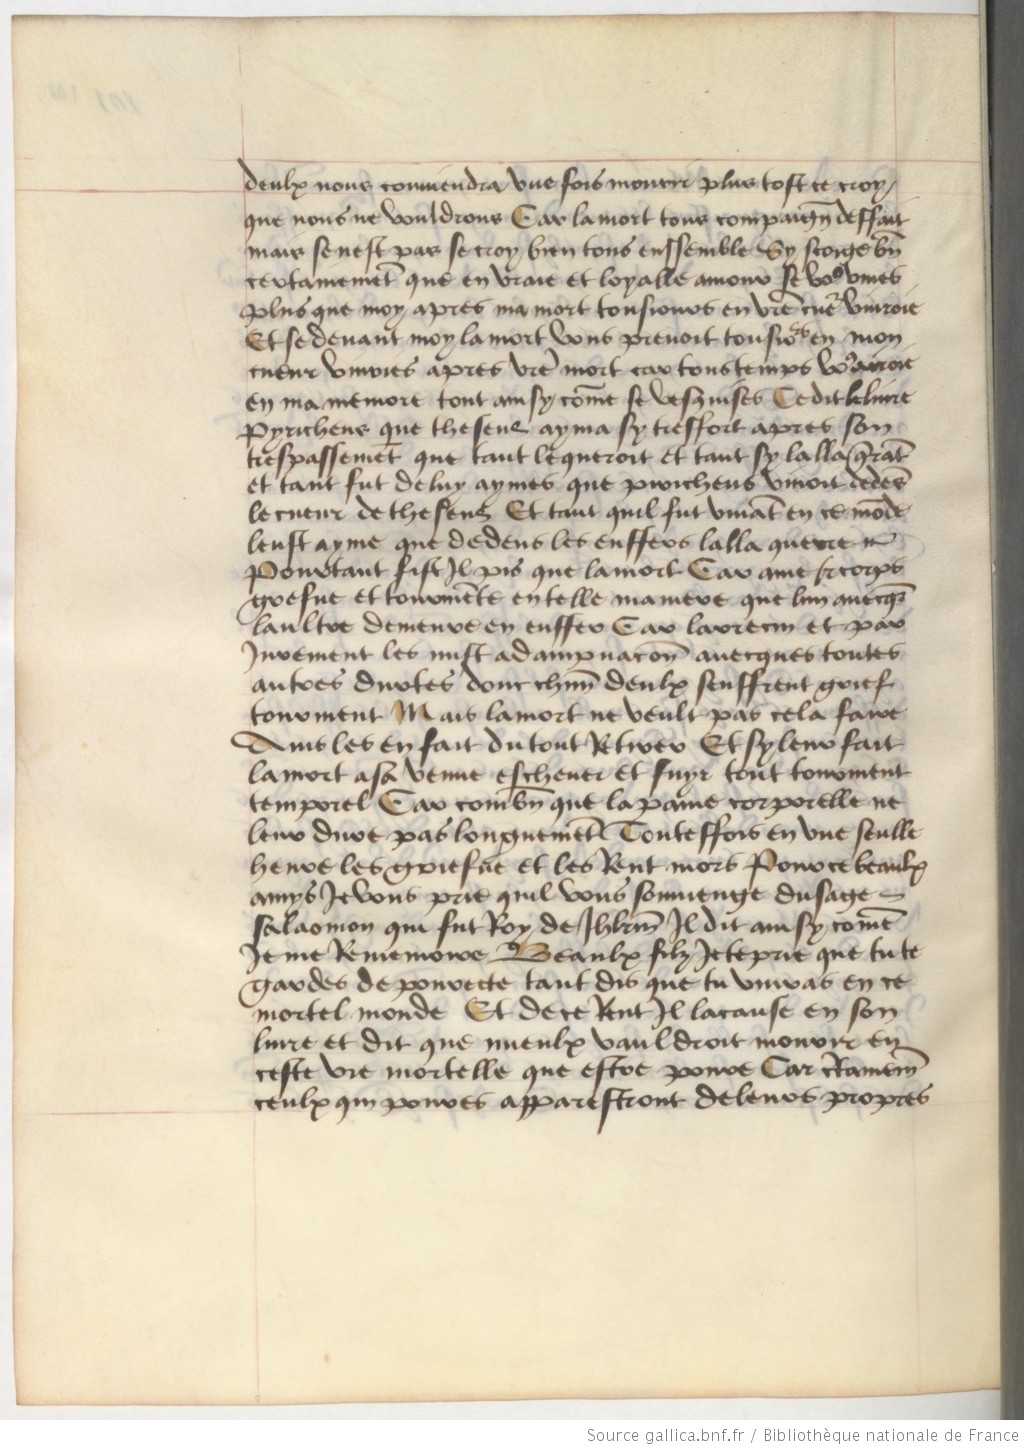 deulx nous conviendra une fois mourir plus tost ce croy
que nous ne vouldrons Car la mort tous compaignōs deffait
mais se nest pas se croy bien tous enssemble Sy scorge bn̄
certainemēt que en vraie et loyalle amour se voꝰ vives
plus que moy apres ma mort tousiours en vrē cuer vivroie
Et se devant moy la mort vous prenoit tousiours en mon
cueur vivries apres vrē mort car tous temps voꝰ auroie
en ma memore tout ainsy cōme se vesquises Ce dit le livre
Pyricheus que theseus ayma sy tresfort apres son
trespassemēt que tant le queroit et tant sy lalla querāt
et tant fut de luy aymes que piricheus vivoit dedēs
le cueur de theseus Et tant quil fut vivāt en ce mōde
leust ayme que dedens les enffers lalla querre
Pourtant fist Il pis que la mort Car ame et corps
griefue et tourmēte en telle maniere que lun avecqs
laultre demeure en enffer Car larrecin et par
Jurement les mist a dampnacōn avecques toutes
autres durtes dont chūn deulx seuffrent grief
tourment Mais la mort ne veult pas cela faire
Ains les en fait du tout Retirer Et sy leur fait
la mort a sa venue eschever et fuyr tout tourment
temporel Car combn̄ que la paine corporelle ne
leur dure pas longuemēt Touteffois en une seulle
heure les griefue et les Rent mors Pour ce beaulx
amys Je vous prie quil vous souviengne du sage
salaomon qui fut Roy de Jhrlm̄ Il dit ainsy cōme
Je me Rememore Beaulx filz Je te prie que tu te
gardes de povrete tant dis que tu vivras en ce
mortel monde Et de ce Rent Il la cause en son
livre et dit que mieulx vauldroit mourir en
ceste vie mortelle que estre povre Car cͭtainem̄
ceulx qui povres apparestront de leurs propres
Source gallica.bnf.fr / Bibliothèque nationale de France